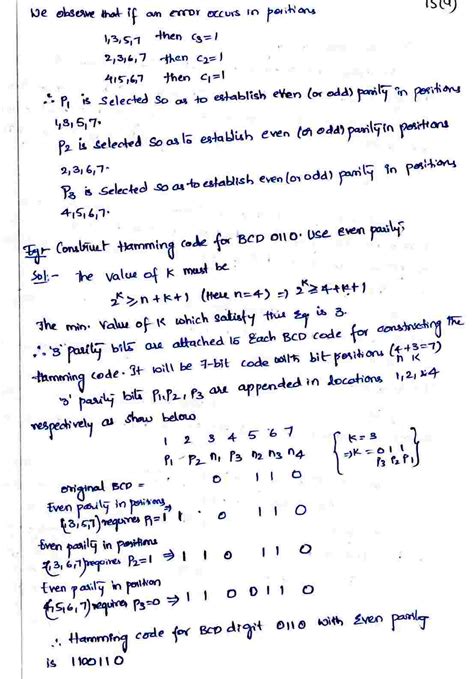 15(4)
We observe that if an error occurs in positions
1,3,5,7 then c3=1
2,3,6,7 then c2=1
4,5,6,7 then c1=1
∴ P1 is selected so as to establish even (or odd) parity in positions
1,3,5,7.
P2 is selected so as to establish even (or odd) parity in positions
2,3,6,7.
P3 is selected so as to establish even (or odd) parity in positions
4,5,6,7.
Eg:- Construct Hamming code for BCD 0110. Use even parity,
Sol:- The value of K must be
2^K ≥ n+K+1 (Here n=4) ⇒ 2^K ≥ 4+K+1
The min. value of K which satisfy this Eq is 3.
∴ '3' parity bits are attached to Each BCD code for constructing the
Hamming code. It will be 7-bit code with bit positions (4+3=7)
n K
'3' parity bits P1,P2,P3 are appended in locations 1,2,&4
respectively as show below
1 2 3 4 5 6 7 { K=3
P1 P2 n1 P3 n2 n3 n4 ⇒K = 0 1 1
P3 P2 P1 }
original BCD = 0 1 1 0
Even parity in positions
1,3,5,7) requires P1=1 1 . 0 1 1 0
Even parity in positions
2,3,6,7) requires P2=1 ⇒ 1 1 0 1 1 0
Even parity in position
4,5,6,7) requires P3=0 ⇒ 1 1 0 0 1 1 0
∴ Hamming code for BCD digit 0110 with Even parity
is 1100110